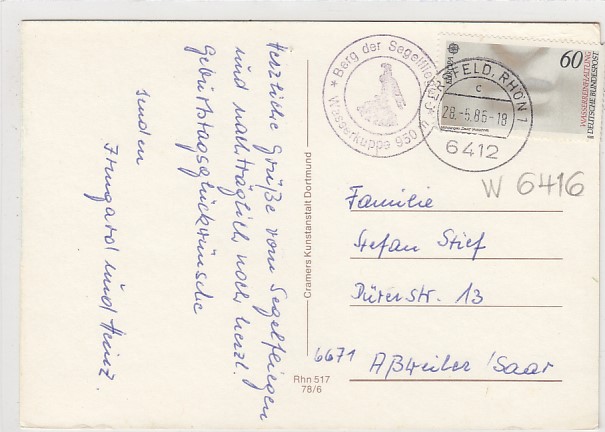 Herzliche Grüße vom Segelfliegen
und nachträglich noch herzl.
Geburtstagsglückwünsche
senden
Irmgard und Heinz.
Cramers Kunstanstalt Dortmund
Rhn 517
78/6
* Berg der Segelflieger *
Wasserkuppe 950 m
GERSFELD, RHÖN 1
c
28.-5.86-18
6412
EUROPA
CEPT
60
WASSERREINHALTUNG
DEUTSCHE BUNDESPOST
W 6416
Familie
Stefan Stief
Dürerstr. 13
6671 Aßweiler / Saar